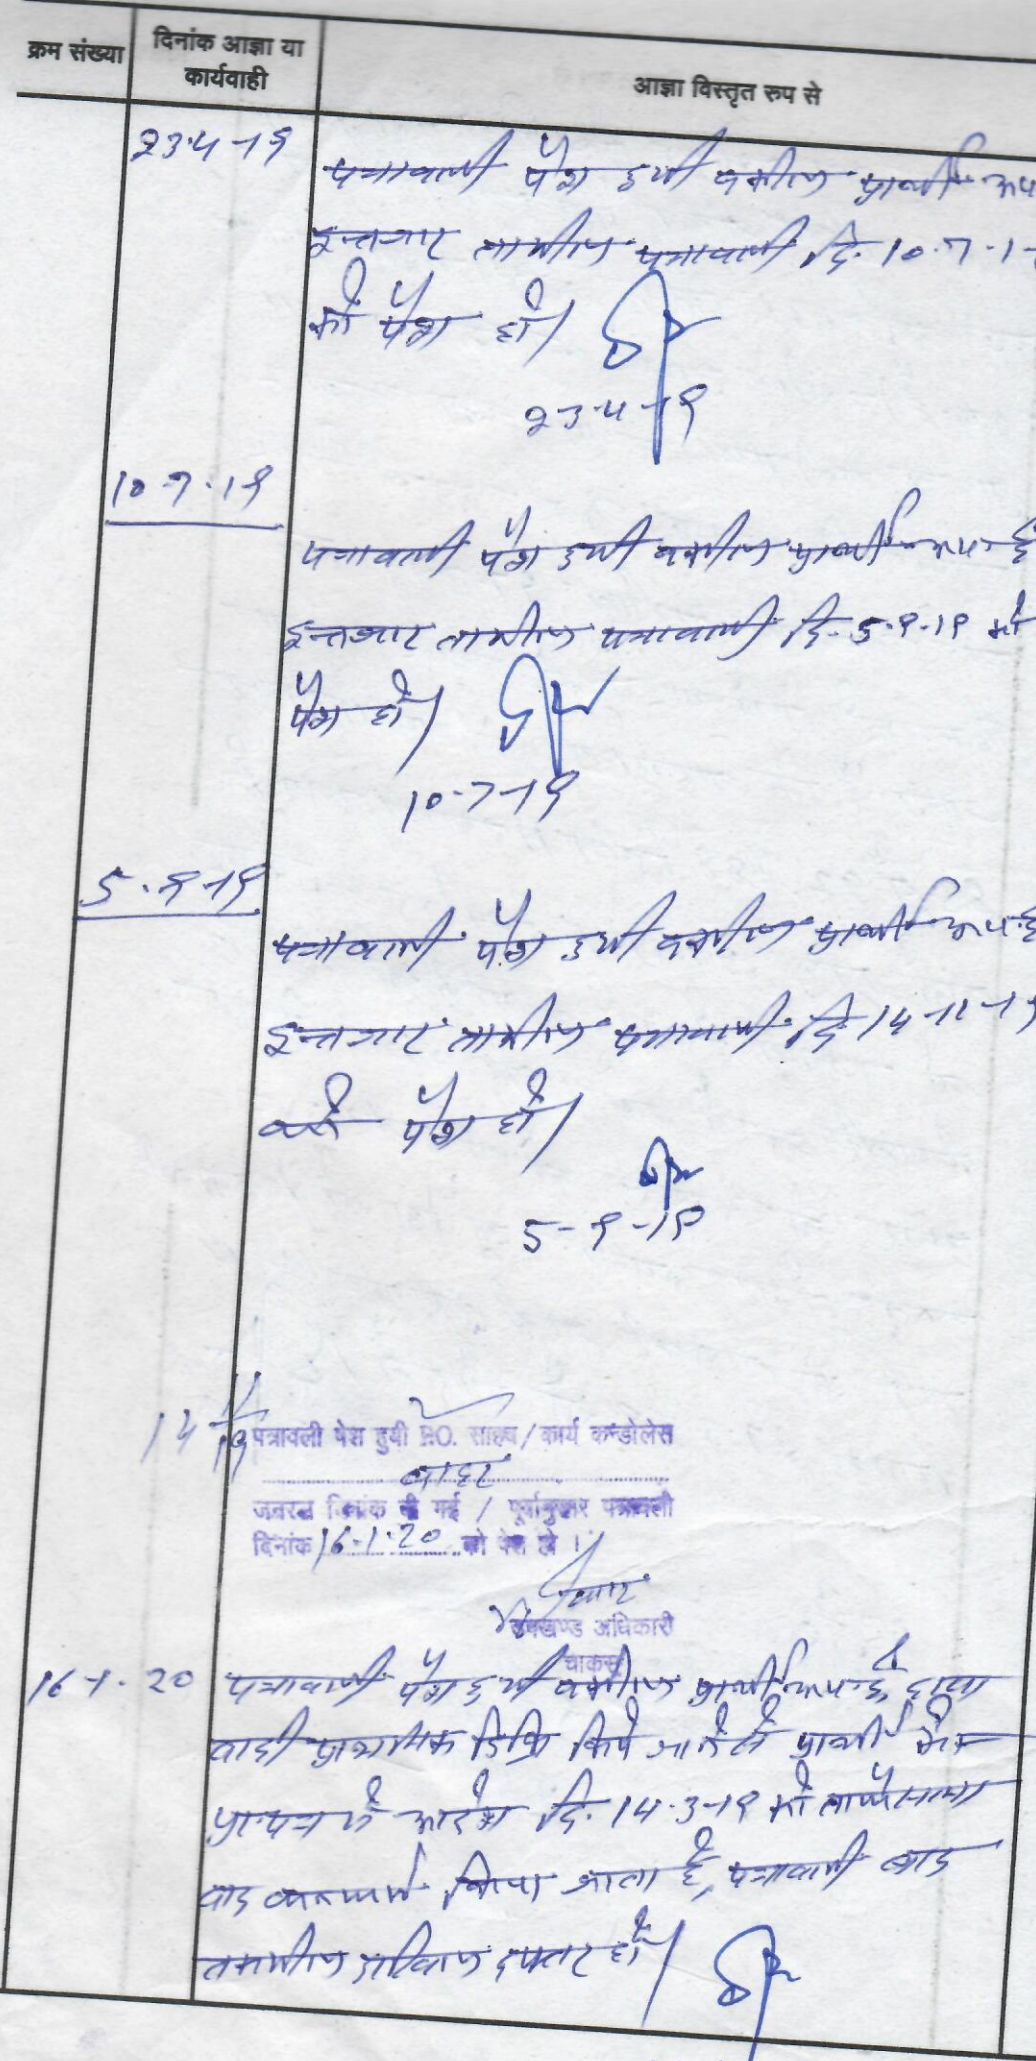 क्रम संख्या
दिनांक आज्ञा या
कार्यवाही
आज्ञा विस्तृत रुप से
23-4-19
पत्रावली पेश हुयी वकील प्रार्थी उप
इन्तजार तामील पत्रावली दि. 10.7.1
को पेश हो।
23-4-19
10-7-19
पत्रावली पेश हुयी वकील प्रार्थी उप है
इन्तजार तामील पत्रावली दि. 5.9.19 को
पेश हो।
10-7-19
5-9-19
पत्रावली पेश हुयी वकील प्रार्थी उप है
इन्तजार तामील पत्रावली दि. 14-11-19
को पेश हो।
5-9-19
14/11/19
पत्रावली पेश हुयी P.O. साहब/कार्य कन्डोलेस
बाहर
जनरल की गई / पूर्वानुसार पत्रावली
दिनांक 16-1-20 को पेश हो ।
उपखण्ड अधिकारी
चाकसू
16-1-20
पत्रावली पेश हुयी वकील प्रार्थी उप है, दावा
वादी प्राथमिक डिक्रि किये जाने से प्रार्थी के
प्रा.पत्र में आदेश दि. 14-3-19 को
वाद किया जाता है, पत्रावली बाद
तकमील दाखिल दफ्तर हो।